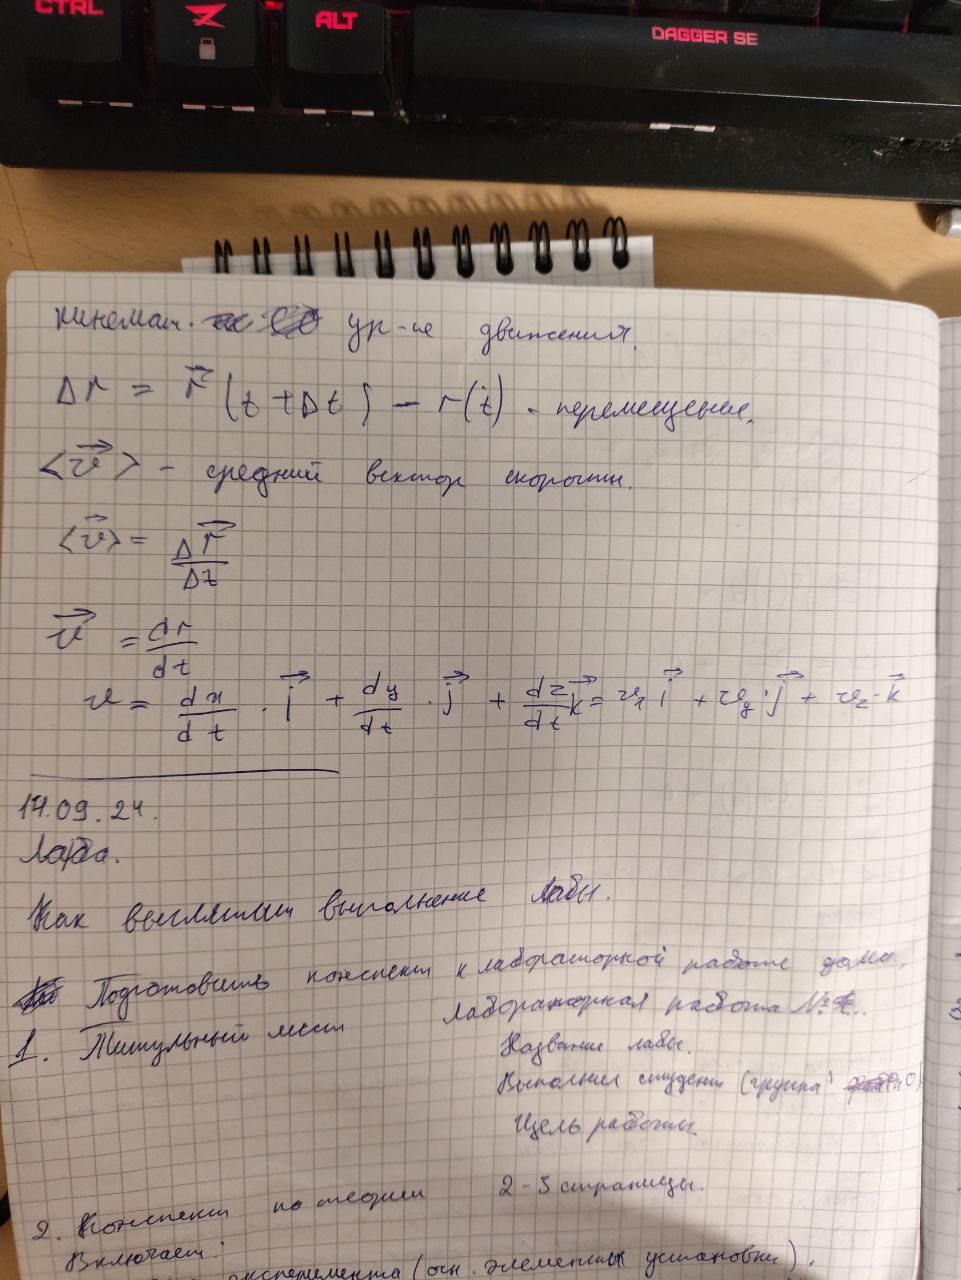 CTRL
ALT
DAGGER SE
кинемат. ур-ие движений.
Δr = r⃗ (t + Δt) − r(t) - перемещение.
<v⃗> - средний вектор скорости.
<v⃗> = Δr⃗/Δt
v⃗ = dr/dt
v = dx/dt · i⃗ + dy/dt · j⃗ + dz/dt k⃗ = vx i⃗ + vy · j⃗ + vz · k⃗
17.09.24.
Лаба.
Как выглядит выполнение лабы.
Подготовить конспект к лабораторной работе дома.
1. Титульный лист Лабораторная работа №
Название лабы.
Выполнил студент (группа
Цель работы
2. Конспект по теории 2-3 страницы.
Включает:
эксперимента (осн. элементы установки).